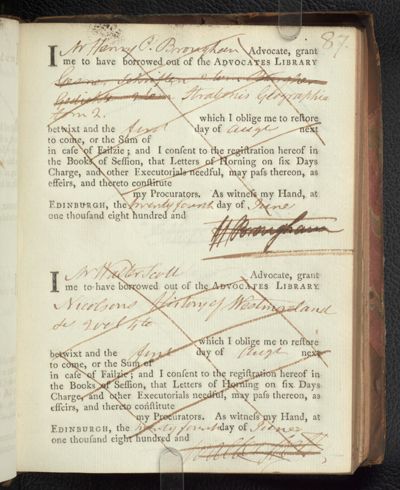 87.
I Mr Henry P. Brougham Advocate, grant
me to have borrowed out of the ADVOCATES LIBRARY
Strabonis Geographia
Tom 2.
which I oblige me to reſtore
betwixt and the first day of Augt next
to come, or the Sum of
in caſe of Failzie; and I conſent to the regiſtration hereof in
the Books of Seſſion, that Letters of Horning on ſix Days
Charge, and other Executorials needful, may paſs thereon, as
effeirs, and thereto conſtitute
my Procurators. As witneſs my Hand, at
EDINBURGH, the twenty fourth day of June
one thouſand eight hundred and
H Brougham
I Mr Walter Scott Advocate, grant
me to have borrowed out of the ADVOCATES LIBRARY
Nicolsons History of Westmorland
&c 2 vols 4to
which I oblige me to reſtore
betwixt and the first day of Augt next
to come, or the Sum of
in caſe of Failzie; and I conſent to the regiſtration hereof in
the Books of Seſſion, that Letters of Horning on ſix Days
Charge, and other Executorials needful, may paſs thereon, as
effeirs, and thereto conſtitute
my Procurators. As witneſs my Hand, at
EDINBURGH, the twenty fourth day of June
one thouſand eight hundred and
Walter Scott